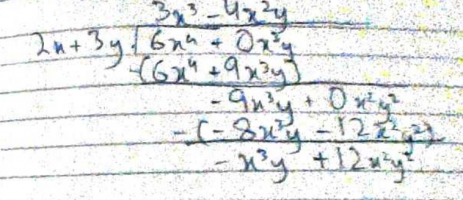 3x³ - 4x²y
2x + 3y √6x⁴ + 0x³y
-(6x⁴ + 9x³y)
-9x³y + 0x²y²
-(-8x³y - 12x²y²)
-x³y + 12x²y²